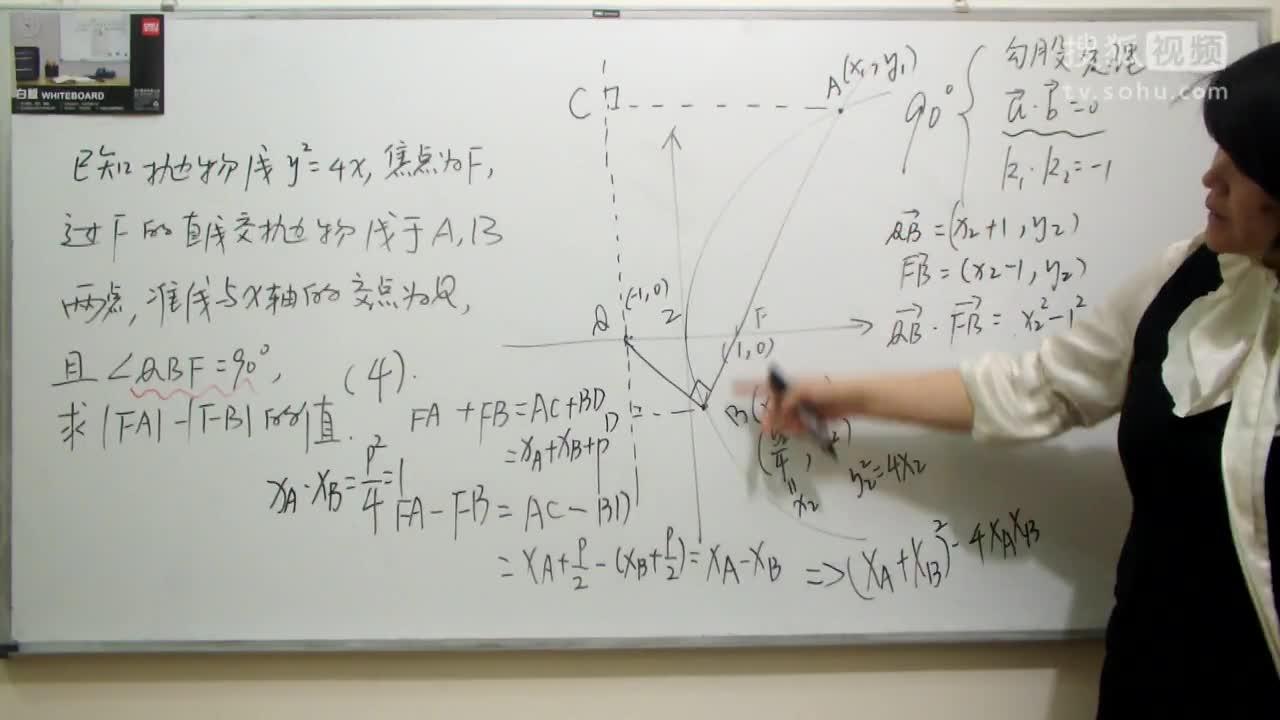 搜狐视频
tv.sohu.com
白板 WHITEBOARD
已知抛物线y²=4x,焦点为F,
过F的直线交抛物线于A,B
两点,准线与x轴的交点为Q,
且∠QBF=90°,
(4).
求|FA|-|FB|的值.
FA+FB=AC+BD
=xA+xB+p
xA·xB=p²/4=1
FA-FB=AC-BD
=xA+p/2-(xB+p/2)=xA-xB
=>(xA+xB)²-4xAxB
C
A(x₁,y₁)
Q
(-1,0)
2
F
(1,0)
D
B(x
y₂²=4x₂
x₂
90°
勾股定理
a·b=0
k₁·k₂=-1
QB=(x₂+1,y₂)
FB=(x₂-1,y₂)
QB·FB=x₂²-1²